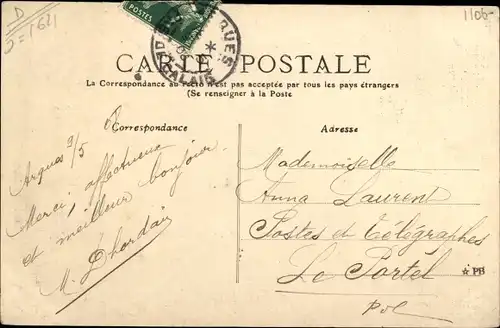 D
1106-
POSTES
ARQUES
PAS DE CALAIS
CARTE POSTALE
La Correspondance au recto n'est pas acceptée par tous les pays étrangers
(Se renseigner à la Poste
Correspondance
Arques 9/5 08
Merci, affectueux
et meilleur bonjour.
M. Dhordain
Adresse
Mademoiselle
Anna Laurent
Postes et Télégraphes
Le Portel
PDC
★ PB